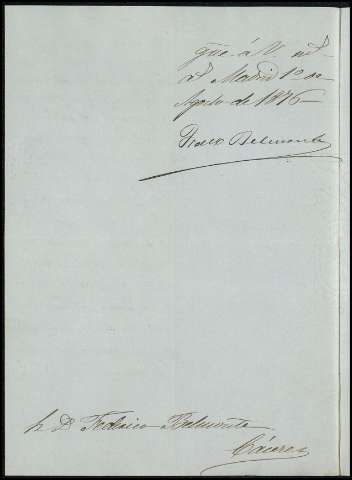 que á V m.s
a.s Madrid 1.º de
Agosto de 1876
Fedco Belmonte
Sr Dn Federico Belmonte
Cáceres